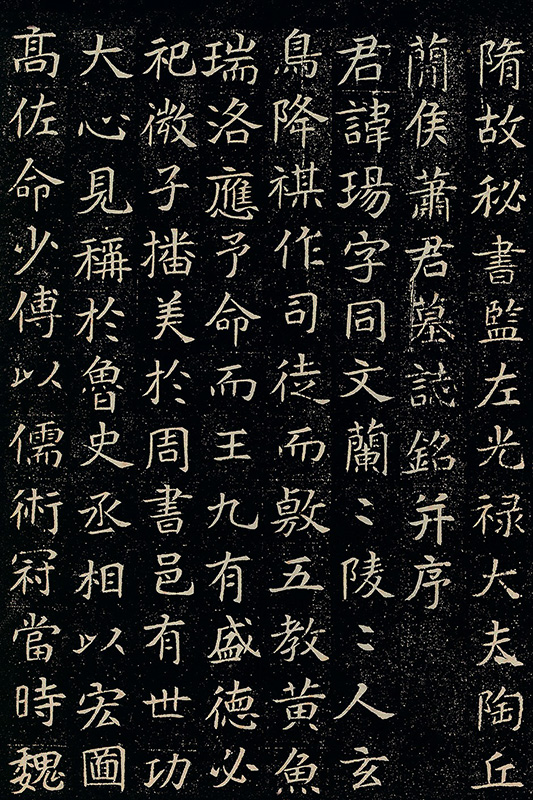 隋故秘書監左光禄大夫陶丘
蕳侯蕭君墓誌銘并序
君諱瑒字同文蘭〻陵〻人玄
鳥降祺作司徒而敦五教黃魚
瑞洛應予命而王九有盛德必
祀微子播美於周書邑有世功
大心見稱於魯史丞相以宏圖
高佐命少傅以儒術冠當時魏